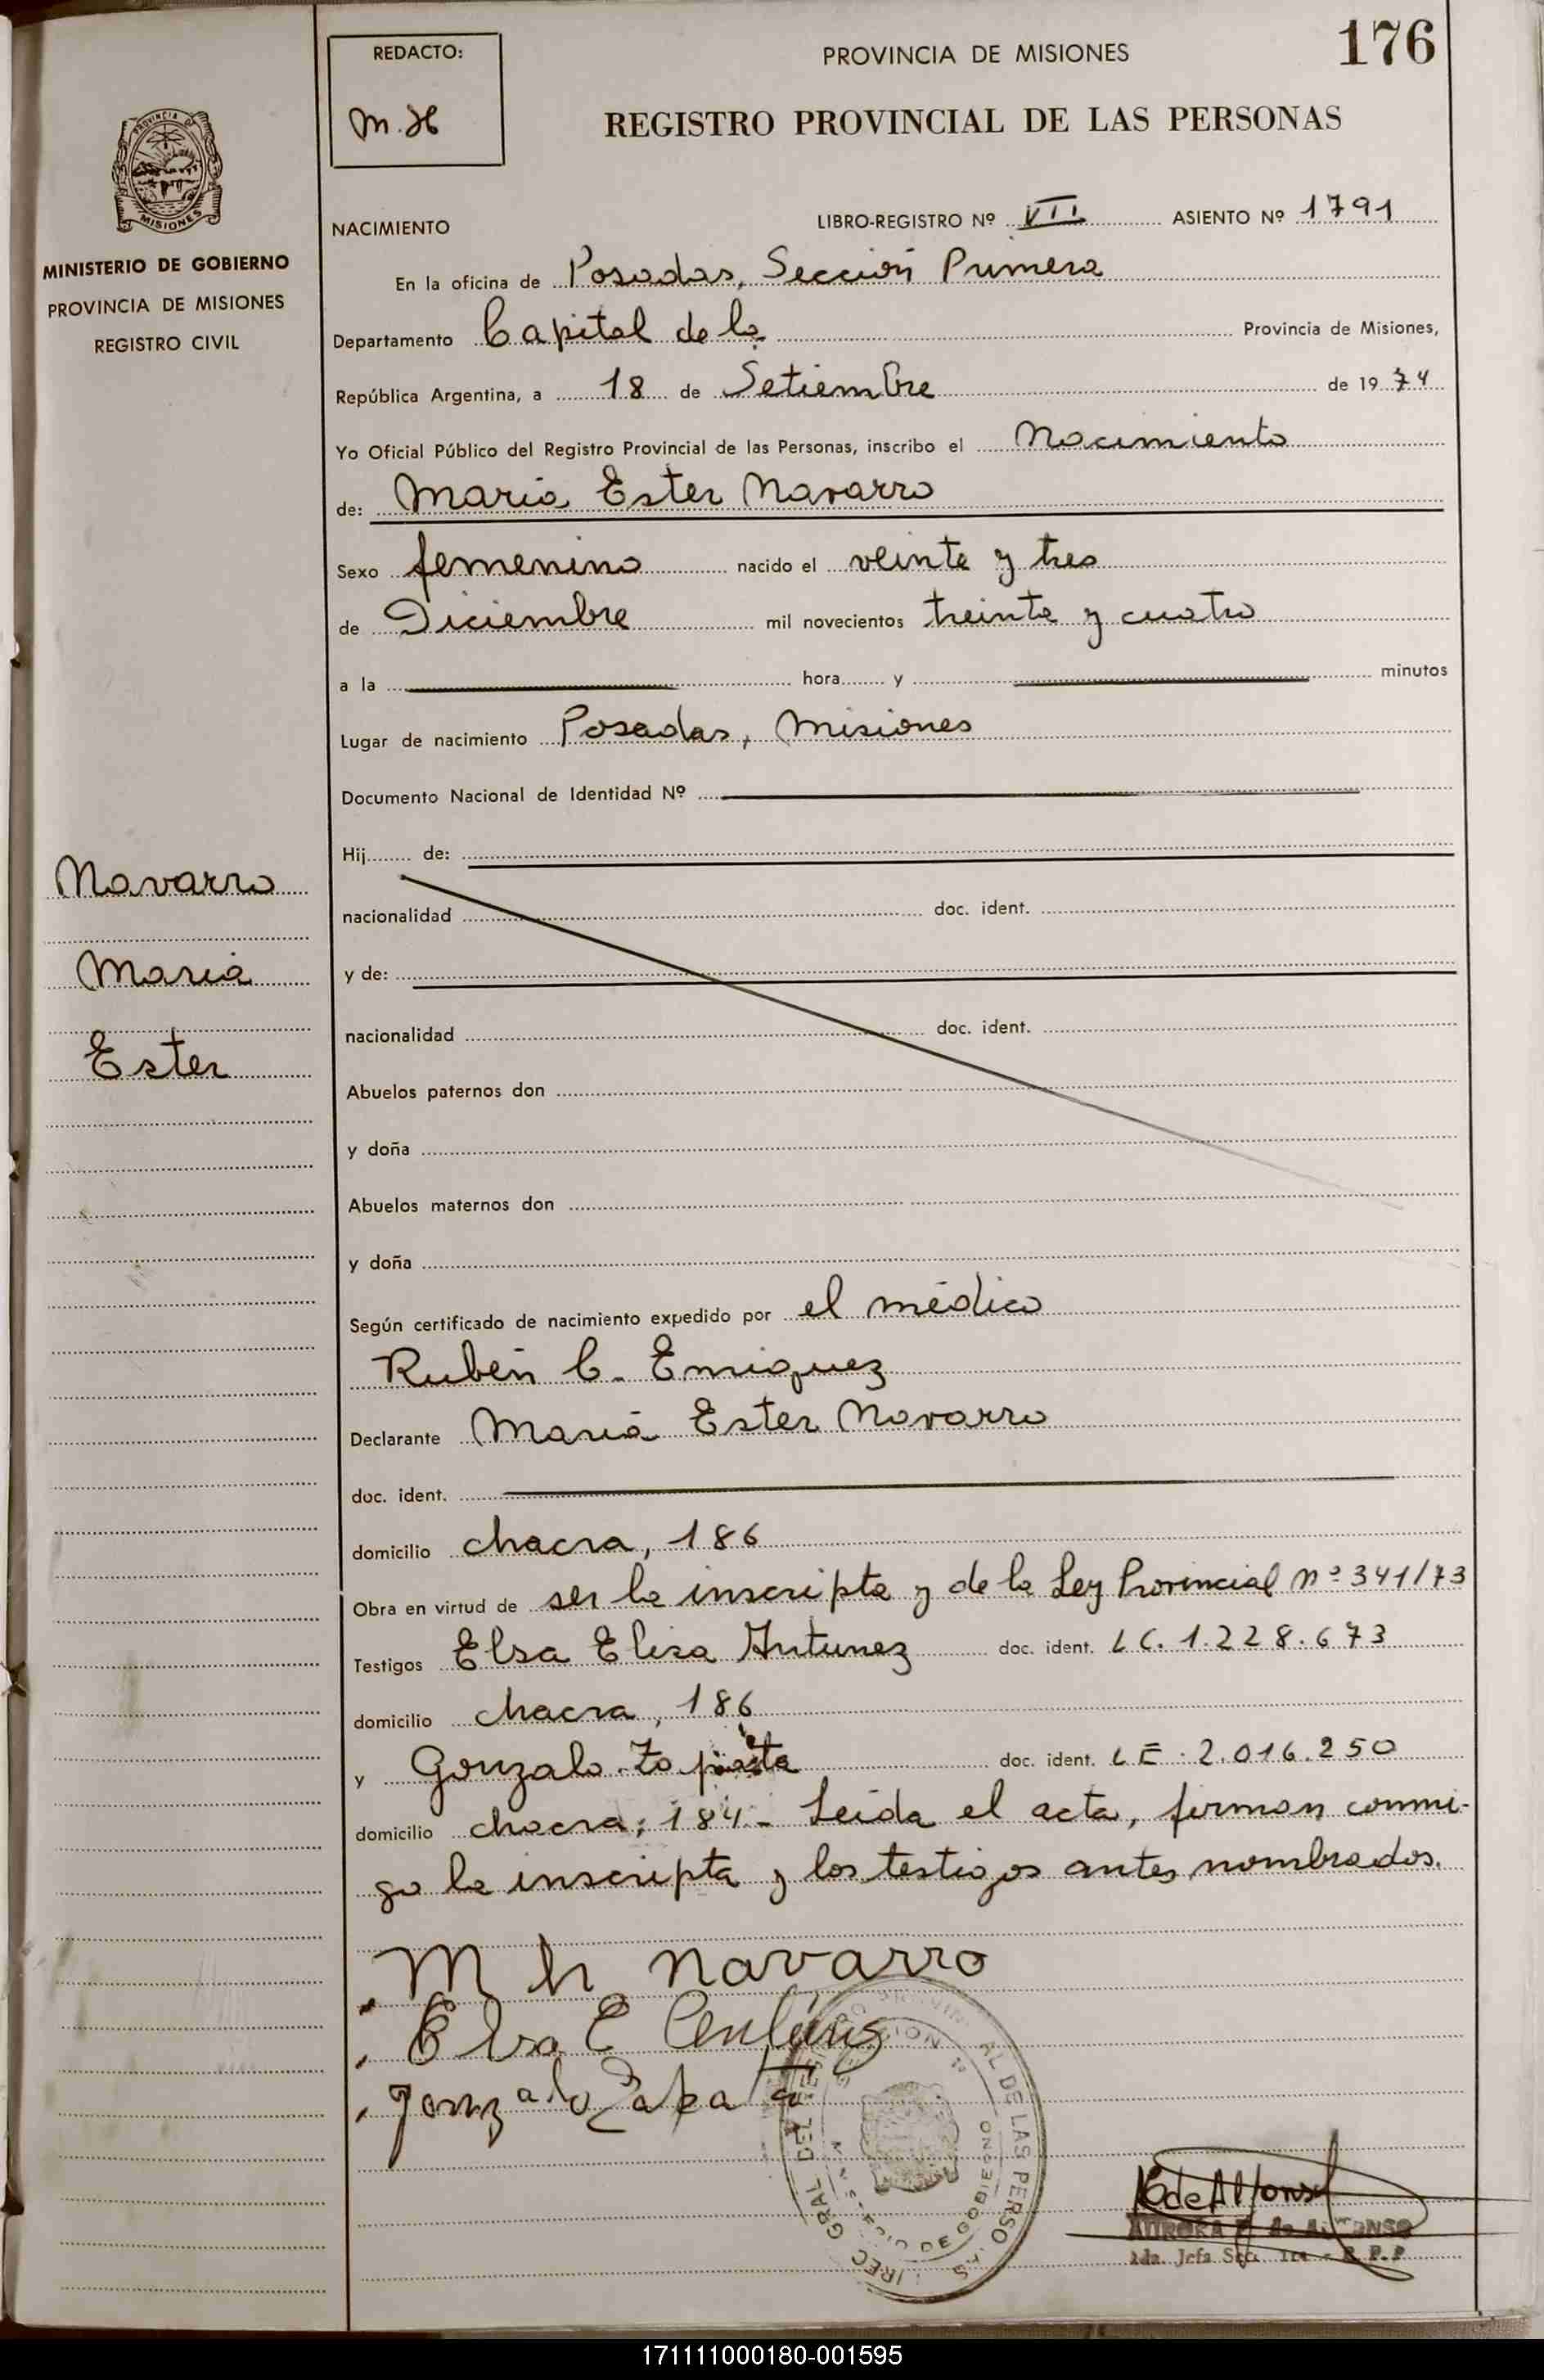 176
REDACTO:
M.H
PROVINCIA DE MISIONES
REGISTRO PROVINCIAL DE LAS PERSONAS
PROVINCIA DE
MISIONES
MINISTERIO DE GOBIERNO
PROVINCIA DE MISIONES
REGISTRO CIVIL
NACIMIENTO LIBRO-REGISTRO Nº VII ASIENTO Nº 1791
En la oficina de Posadas, Sección Primera
Departamento Capital de la Provincia de Misiones,
República Argentina, a 18 de Setiembre de 1974
Yo Oficial Público del Registro Provincial de las Personas, inscribo el Nacimiento
de: María Ester Navarro
Sexo femenino nacido el veinte y tres
de Diciembre mil novecientos treinta y cuatro
a la hora y minutos
Lugar de nacimiento Posadas, Misiones
Documento Nacional de Identidad Nº
Hij de:
nacionalidad doc. ident.
y de:
nacionalidad doc. ident.
Abuelos paternos don
y doña
Abuelos maternos don
y doña
Navarro
María
Ester
Según certificado de nacimiento expedido por el médico
Rubén C. Enriquez
Declarante María Ester Navarro
doc. ident.
domicilio chacra, 186
Obra en virtud de ser la inscripta y de la Ley Provincial nº 341/73
Testigos Elsa Elisa Antunez doc. ident. LC. 1.228.673
domicilio chacra, 186
y Gonzalo Zapata doc. ident. LE. 2.016.250
domicilio chacra, 184.- Leída el acta, firman conmi-
go la inscripta y los testigos antes nombrados.
M Navarro
Elsa E
Gonzalo Zapata
AL DE LAS PERSO
GRAL DEL
DE GOBIERNO
de Alfonso
AURORA de ALFONSO
2da. Jefa Sec. 1ra - R.P.P
171111000180-001595